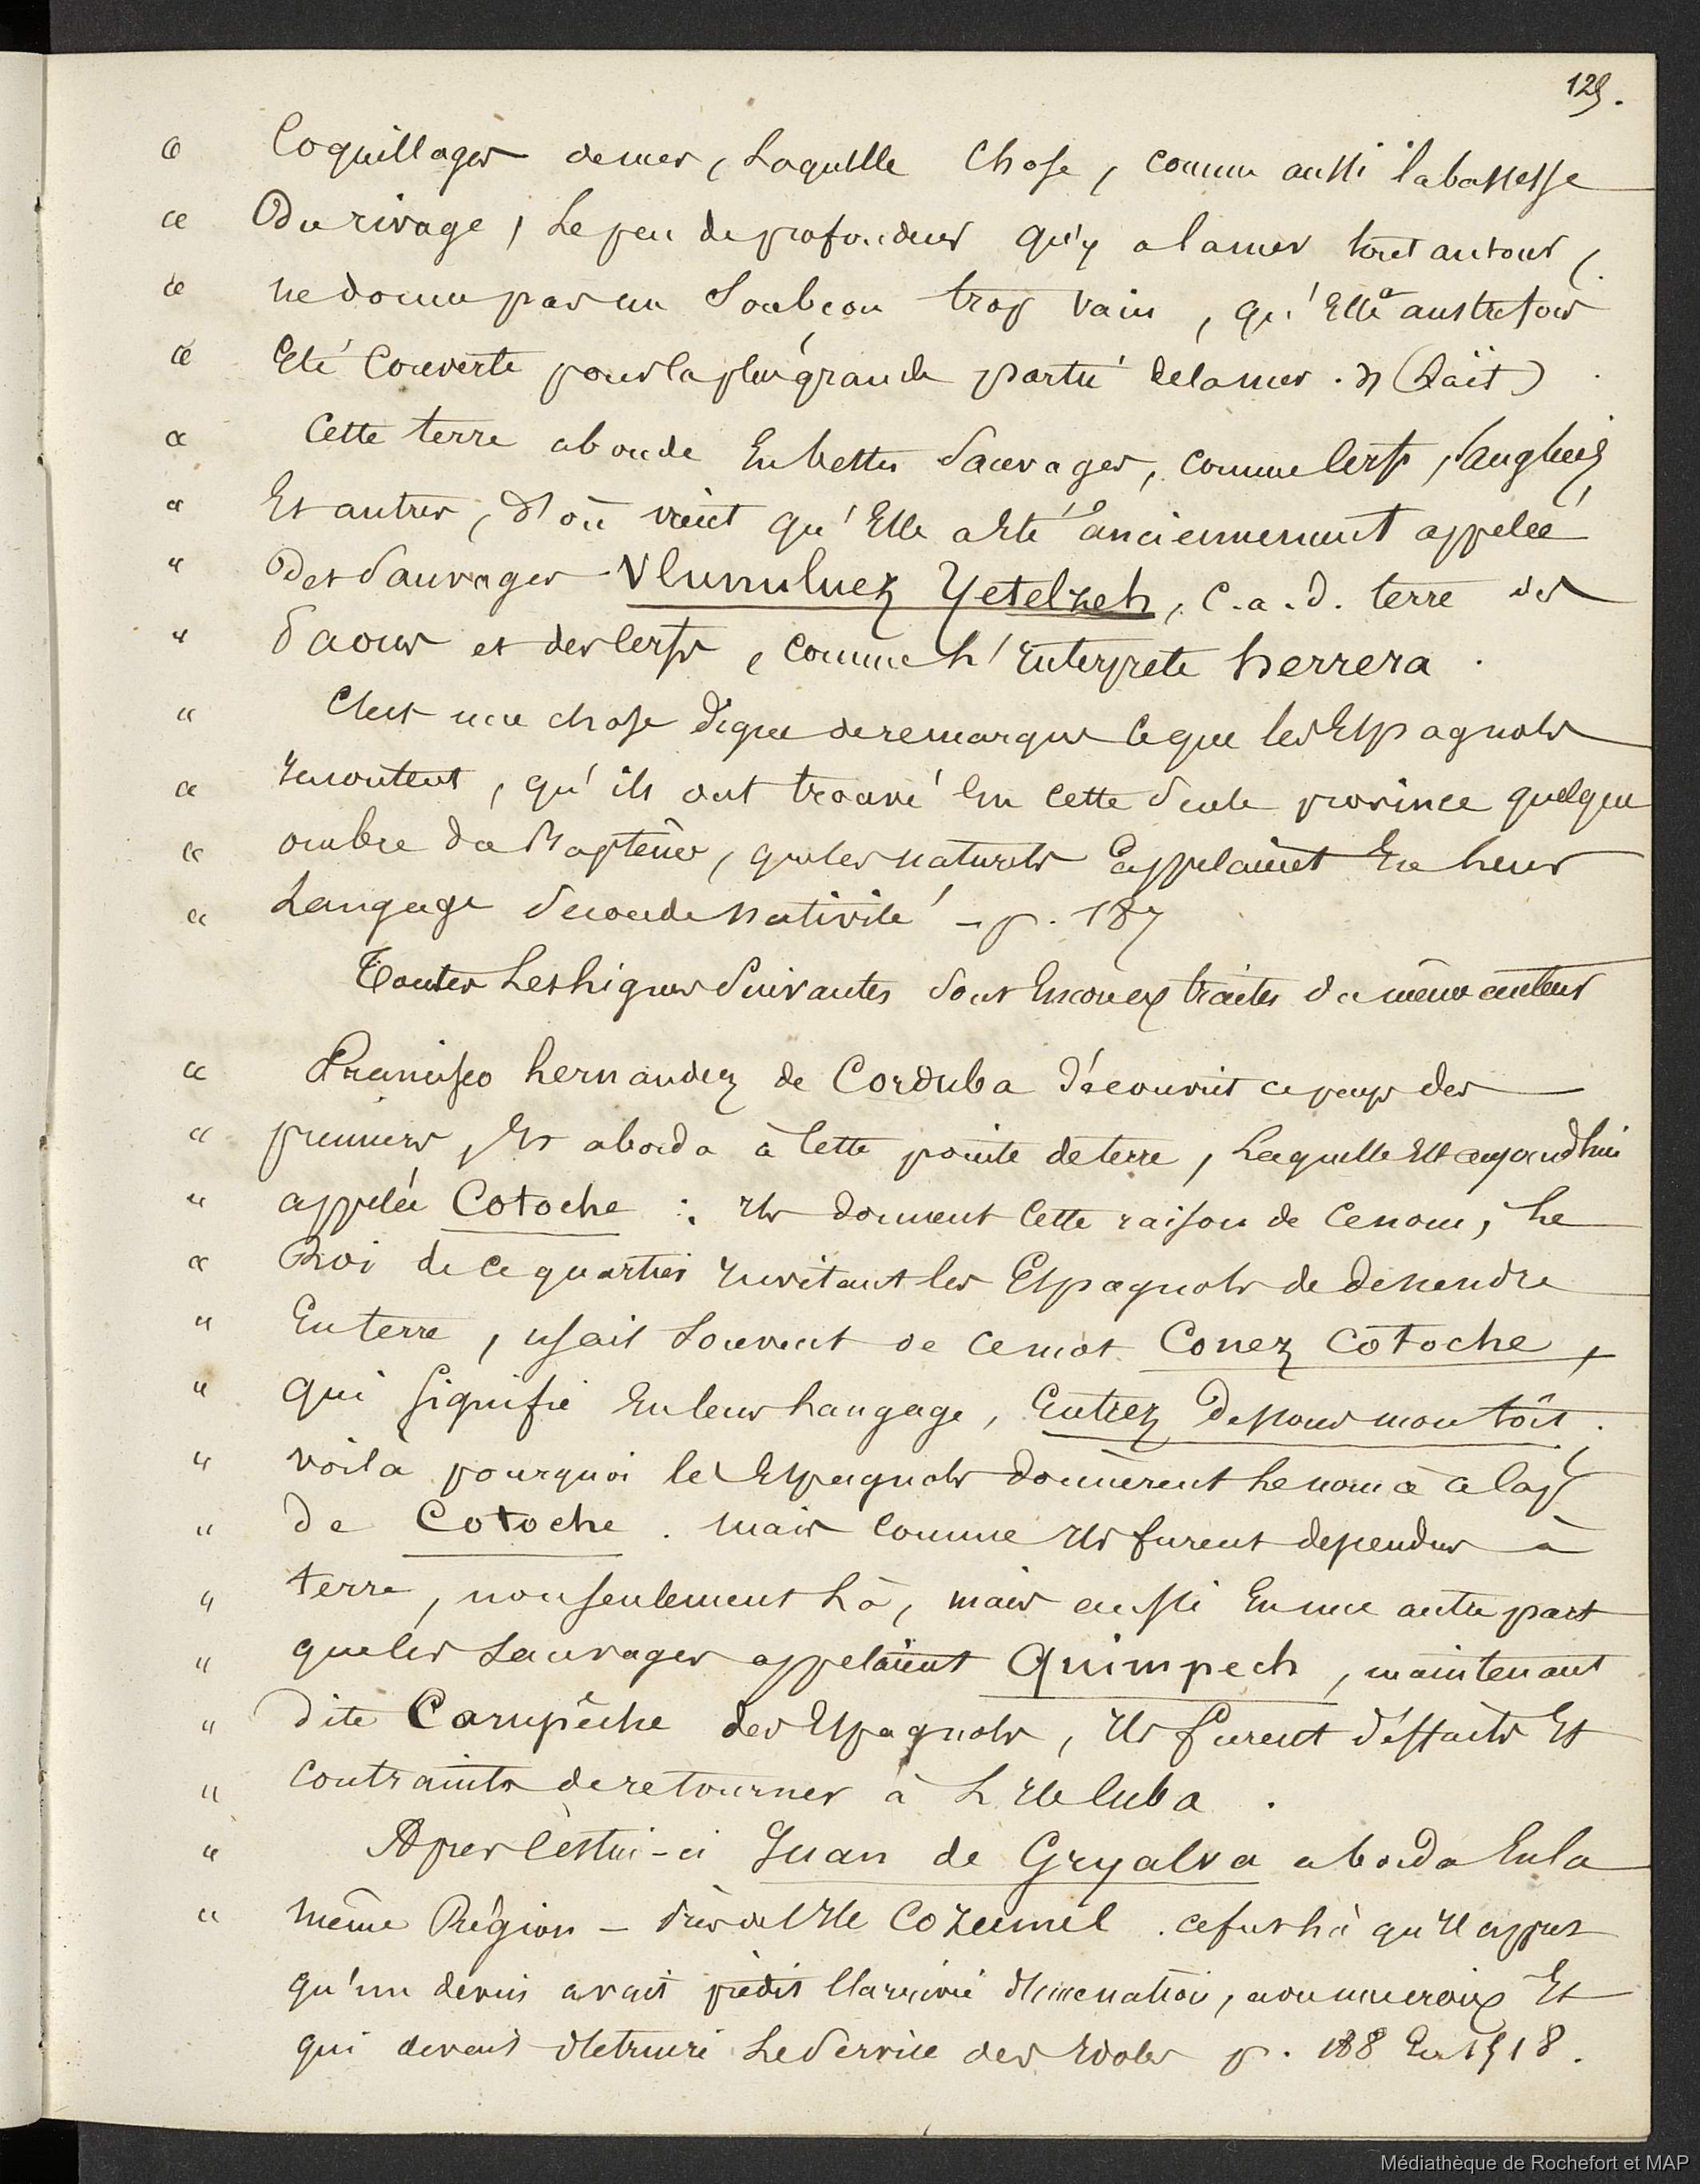 125.
" Coquillages de mer, Laquelle Chose, comme aussi la bassesse
" Du rivage, Le peu de profondeur qu'y a la mer tout autour,
" ne donne pas un Soubçon trop vain, qu'Elle a austrefois
" Eté Couverte pour la plus grande partie de la mer. » (Laët)
" Cette terre abonde En bestes Sauvages, comme Cerfs, Sangliers
" Et autres, d'où vient qu'Elle a Eté anciennement appelée
" Des Sauvages Vlumiluez Yetelzeh, c.a.d. terre des
" Daours et des Cerfs, comme L'Interprete herrera.
" C'est une chose digne de remarque Ce que les Espagnols
" racontent, qu'ils ont trouvé En cette Seule province quelque
" ombre du Baptême, que les naturels appelaient En Leur
" Langage Seconde Nativité - p. 187
Toutes Les Lignes Suivantes Sont Encore Extraites du même auteur
" Francisco hernandez de Corduba découvrit ce pays des
" premiers, Et aborda à Cette pointe de terre, Laquelle Est aujourd'hui
" appelée Cotoche : Ils donnent Cette raison de Ce nom, Le
" Roi de Ce quartier Invitant les Espagnols de descendre
" En terre, usait Souvent de Ce mot Conez Cotoche,
" qui Signifie En leur Langage, Entrez dessous mon toît.
" voilà pourquoi les Espagnols donnèrent Le nom à Ce Cap
" de Cotoche. mais Comme Ils furent descendus à
" terre, non seulement Là, mais aussi En une autre part
" que les Sauvages appelaïent Quimpech, maintenant
" dite Campêche des Espagnols, Ils furent déffaits Et
" Contraints de retourner à L'Ile Cuba.
" Après Cestui-ci Juan de Gryalva aborda En la
" même Région - L'Ile Cozumel. ce fut Là qu'Il apprit
qu'un devin avait prédit l'arrivée d'une nation, avec une croix Et
qui devait détruire Le Service des Idoles p. 188 En 1518.
Médiathèque de Rochefort et MAP